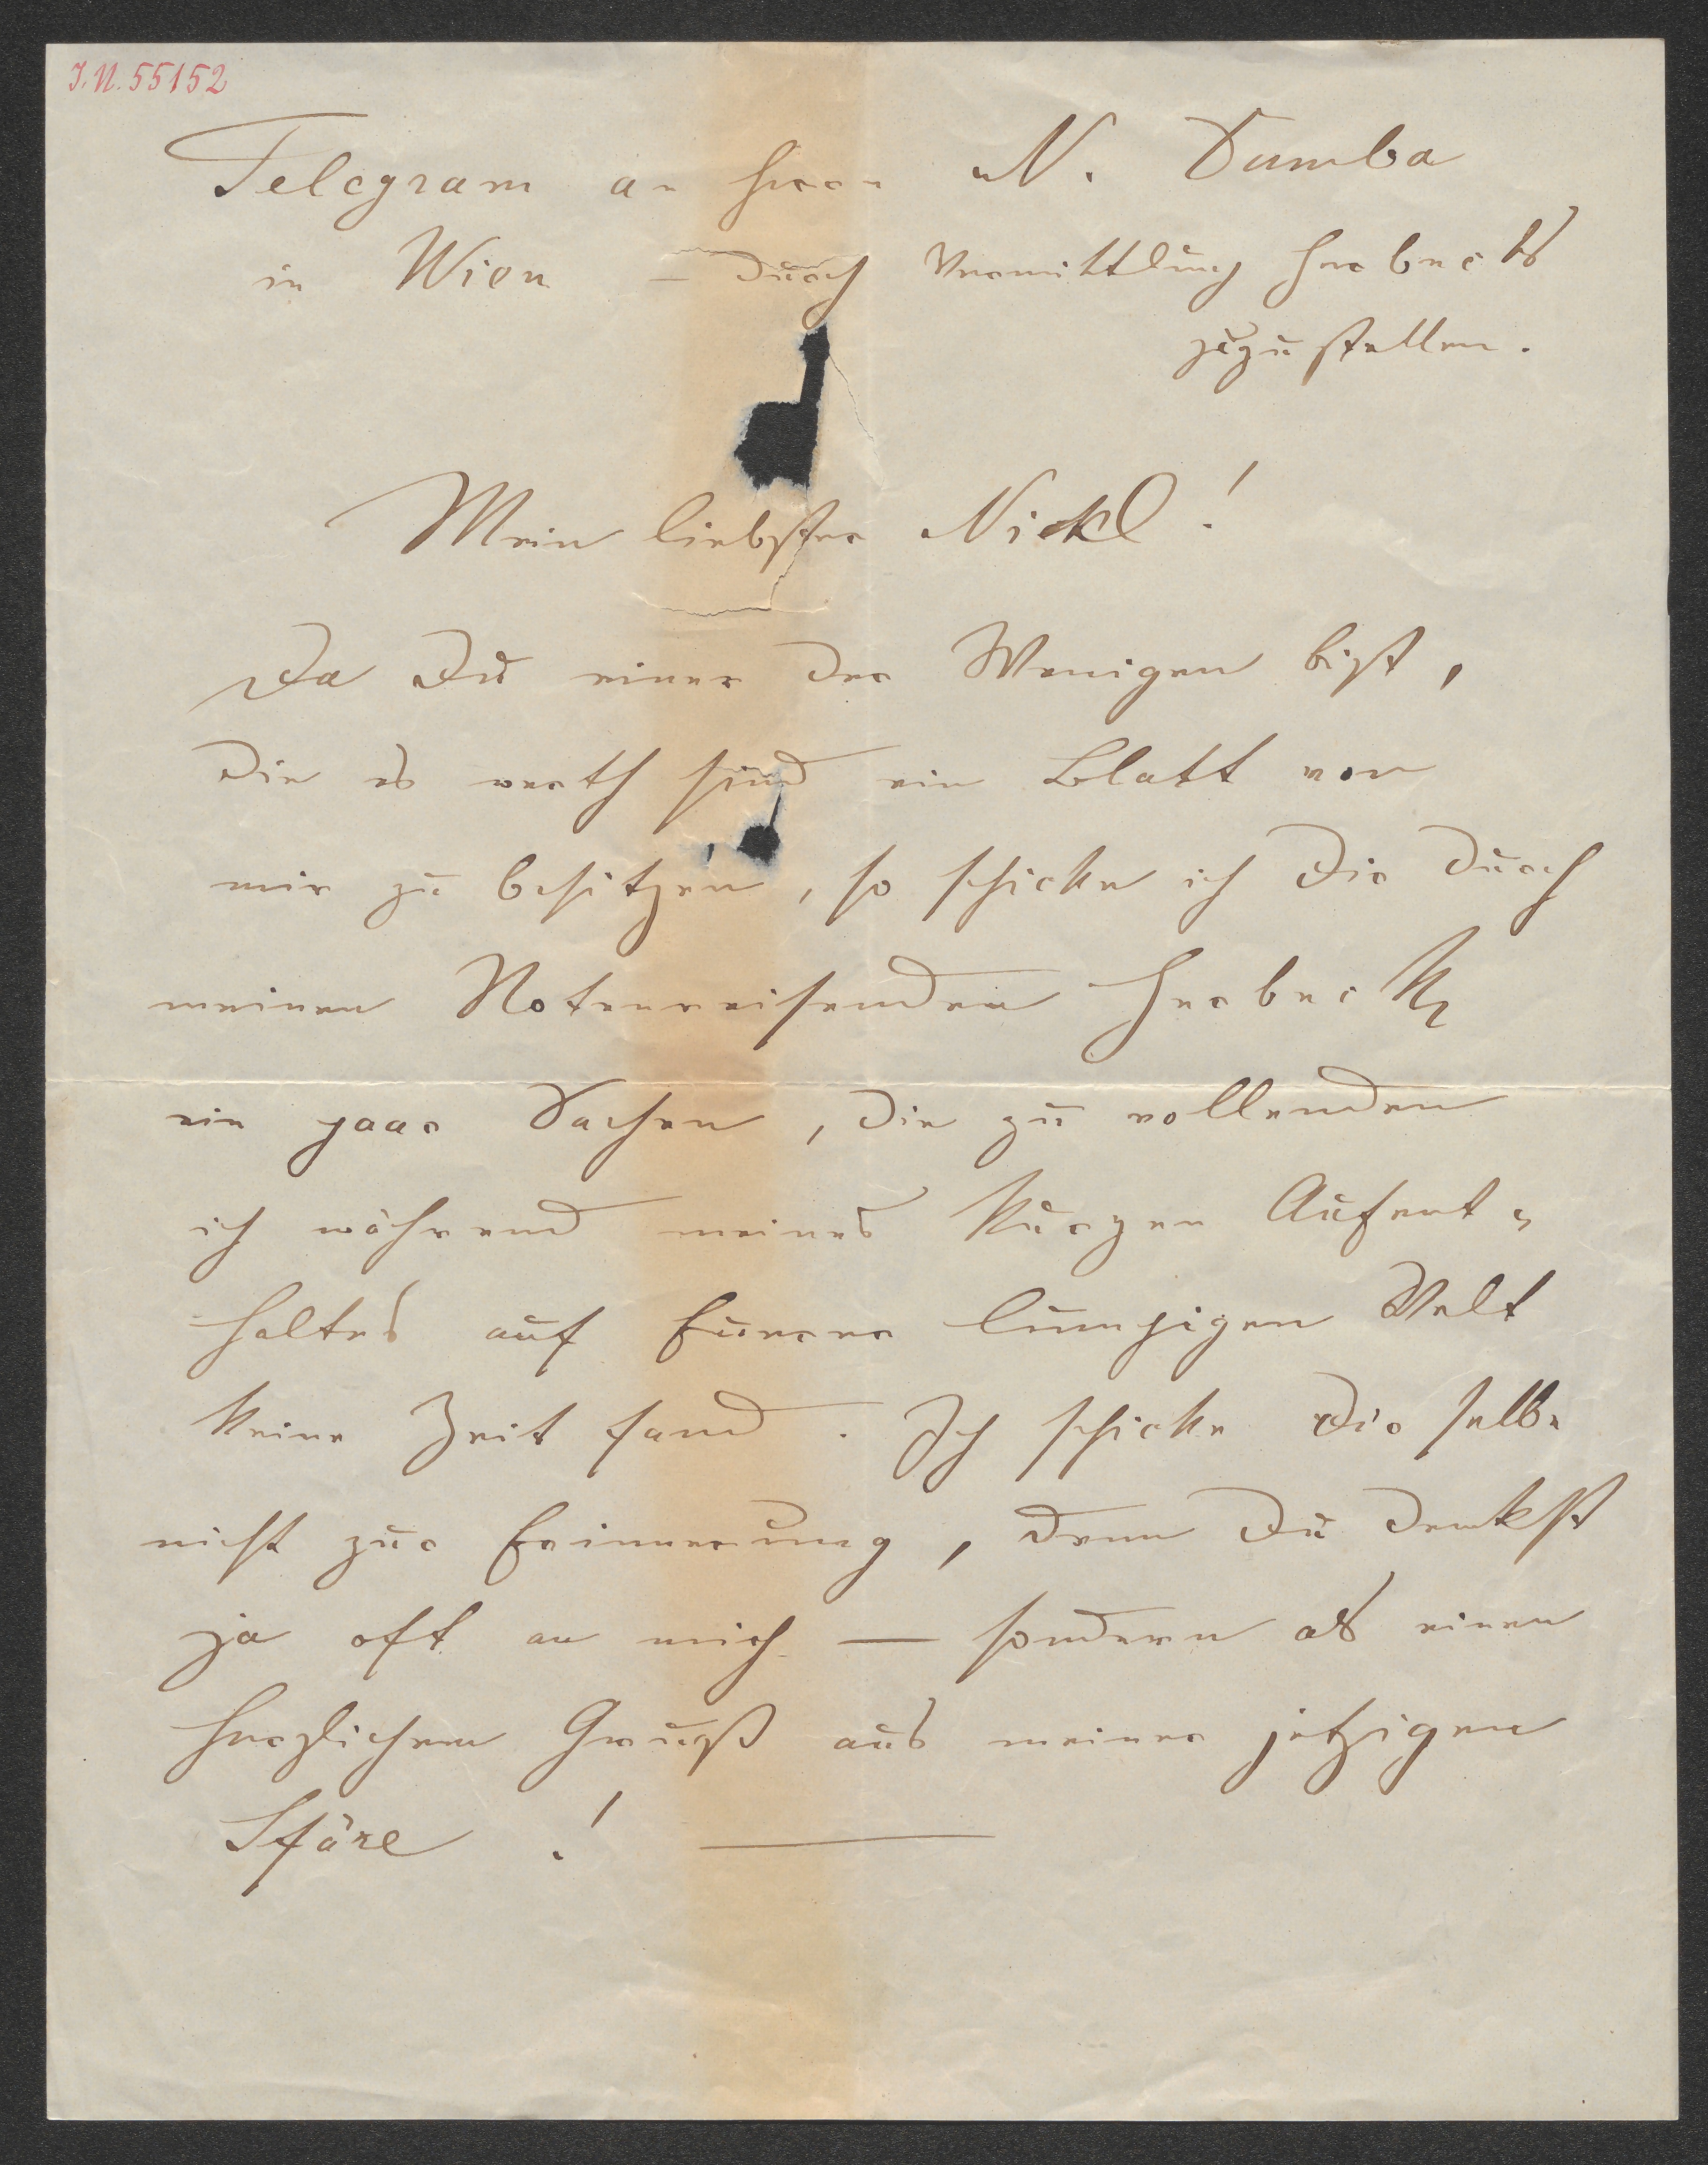 J.N. 55152
Telegram an Herrn N. Dumba
in Wien – durch Vermittlung Herbecks
zuzustellen.
Mein liebster Nickl!
Da Du einer der Wenigen bist,
die es werth sind ein Blatt von
mir zu besitzen, so schicke ich Dir durch
meinen Notenreisenden Herbeck
ein paar Sachen, die zu vollenden
ich während meines kurzen Aufent-
haltes auf Eurer lumpigen Welt
keine Zeit fand. Ich schicke Dir selbe
nicht zur Erinnerung, denn Du denkst
ja oft an mich – sondern als einen
herzlichen Gruß aus meiner jetzigen
Sfäre!